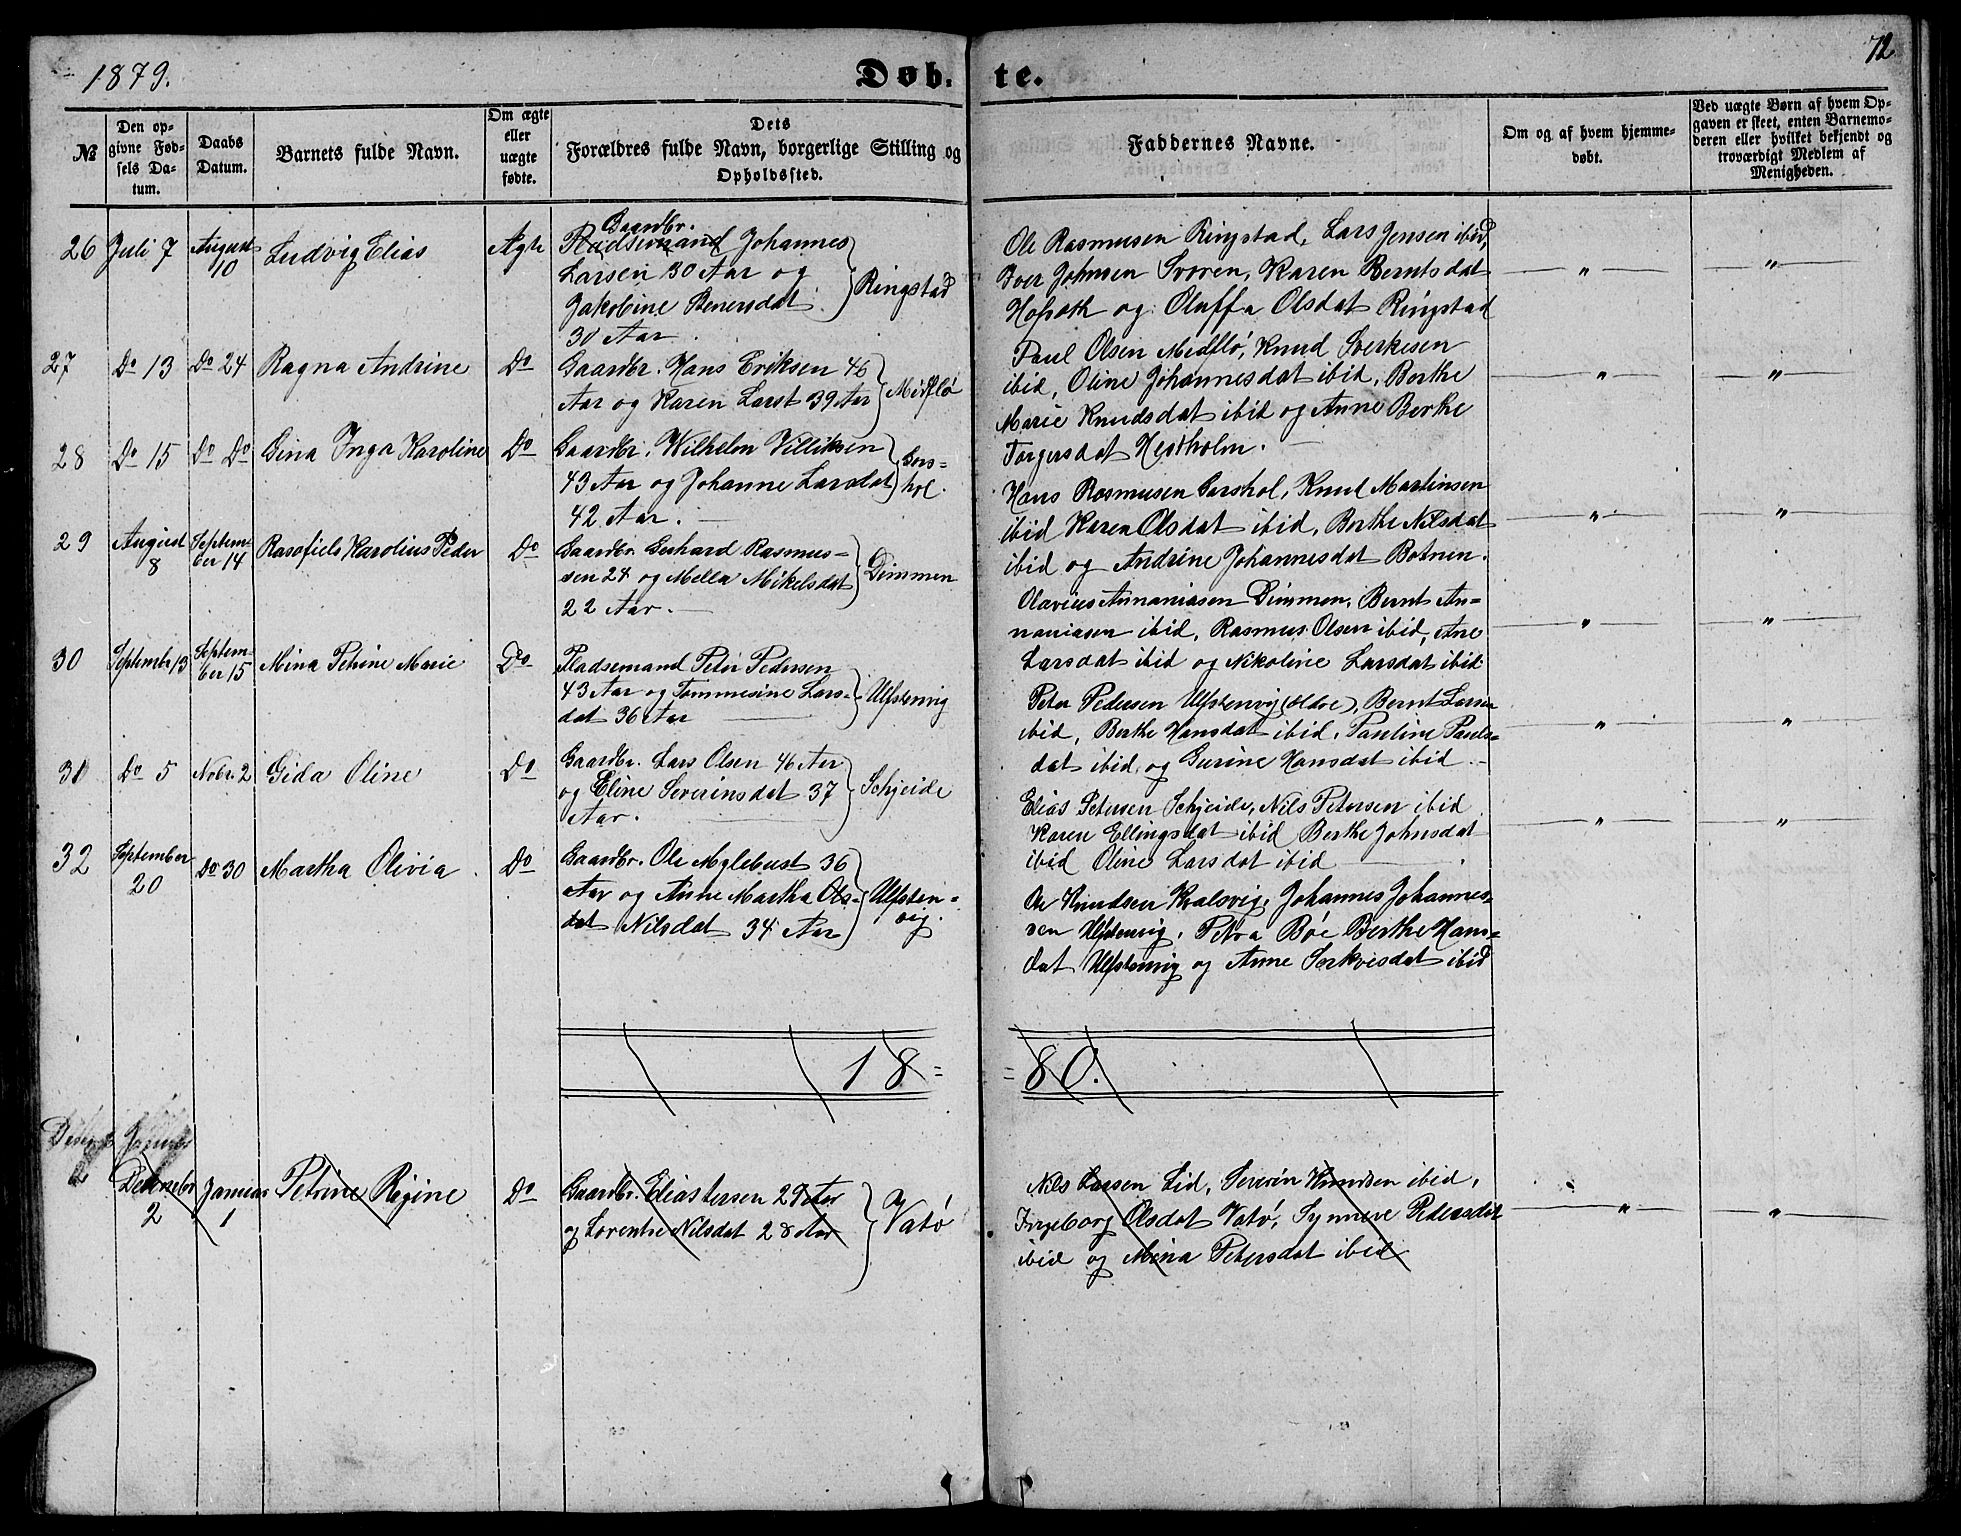 1879.
Døb- te.
72
№
Den op-
givne Fød-
sels Da-
tum.
Daabs
Datum.
Barnets fulde Navn.
Om ægte
eller
uægte
fødte.
Dets
Forældres fulde Navn, borgerlige Stilling og
Opholdssted.
Faddernes Navne.
Om og af hvem hjemme-
døbt.
Ved uægte Børn af hvem Op-
gaven er skeet, enten Barnemo-
deren eller hvilket bekjendt og
troværdigt Medlem af
Menigheden.
26 Juli 7 August 10 Ludvig Elias Ægte
Gaardbr.
Pladsemand Johannes
Larsen 30 Aar og
Jakobine Benersdat
30 Aar
Ringstad
Ole Rasmusen Ringstad, Lars Jensen ibid,
Iver Johnsen Svoren, Karen Berntsdat
Hofseth og Oluffa Olsdat Ringstad
27 Do 13 Do 24 Ragna Andrine Do
Gaardbr. Hans Eriksen 46
Aar og Karen Larsd 39 Aar
Midflø
Paul Olsen Medflø, Knud Sverkesen
ibid, Oline Johannesdat ibid, Berthe
Marie Knudsdat ibid og Anne Berthe
Torgersdat Hestholm.
28 Do 15 Do Do Gina Inga Karoline Do
Gaardbr. Wilhelm Villiksen
43 Aar og Johanne Larsdat
42 Aar.
Gars-
hol.
Hans Rasmusen Garshol, Knud Martinsen
ibid Karen Olsdat ibid, Berthe Nilsdat
ibid og Andrine Johannesdat Botnen.
29 August 8 Septem-
ber 14 Rasofiels Karolius Peder Do
Gaardbr. Gerhard Rasmus-
sen 24 og Mella Mikelsdat
22 Aar.
Dimmen
Olavius Annaniasen Dimmen, Bernt An-
naniasen ibid, Rasmus Olsen ibid, Ane
Larsdat ibid og Nikoline Larsdat ibid
30 Septembr 13 Septem-
ber 15 Mina Petrine Marie Do
Pladsemand Peter Pedersen
43 Aar og Tommesine Lars-
dat 36 Aar
Ulfstenvig
Peter Pedersen Ulfstenvig (ældre), Bernt Larsen
ibid, Berthe Hansdat ibid, Pauline Pauls-
dat ibid, og Gurine Hansdat ibid.
31 Do 5 Nobr. 2 Gida Oline Do
Gaardbr. Lars Olsen 46 Aar
og Eline Severinsdat 37
Aar.
Schjeide
Elias Petersen Schjeide, Nils Petersen ibid
Karen Ellingsdat ibid Berthe Johnsdat
ibid Oline Larsdat ibid
32 September
20 Do 30 Martha Olivia Do
Gaardbr. Ole Myklebust 36
Aar og Anne Martha Ols-
dat Nilsdat 34 Aar
Ulfsten-
vig.
Ole Knudsen Kvalsvig, Johannes Johannes-
sen Ulfstenvig, Petra Bøe Berthe Hans-
dat Ulfstenvig og Anne Serkvesdat ibid
18= =80.
Januar
Decembr
2 Januar
1 Petrine Regine Do
Gaardbr. Elias Persen 29 Aar
og Lorentse Nilsdat 28 Aar
Vatø
Nils Larsen Lid, Severin Knudsen ibid,
Ingeborg Olsdat Vatø, Synneve Pedersdat
ibid og Mina Petersdat ibid